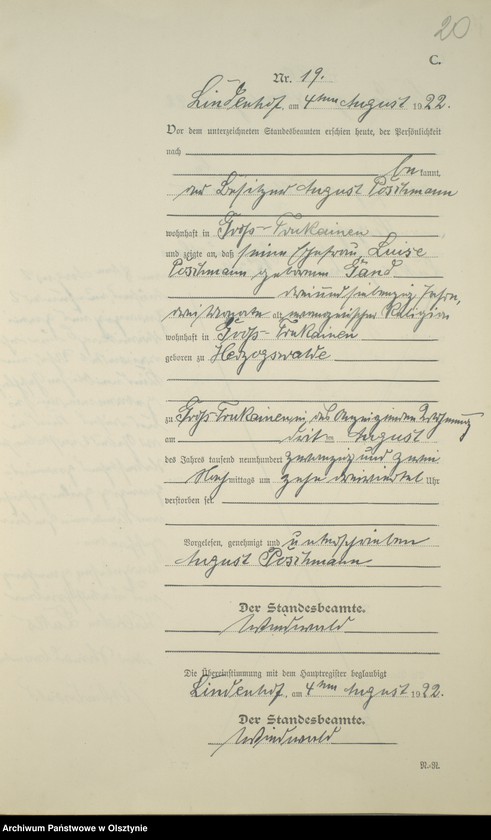 20
C.
Nr. 19.
Lindenhof, am 4ten August 1922.
Vor dem unterzeichneten Standesbeamten erschien heute, der Persönlichkeit
nach
be kannt,
der Besitzer August Poschmann
wohnhaft in Groß-Trukeinen
und zeigte an, daß seine Ehefrau Luise
Poschmann geborene
dreiundsiebenzig Jahre,
drei Monate alt, evangelischer Religion
wohnhaft in Groß-Trukeinen
geboren zu Herzogswalde
zu Groß Trukeinen, in des Anzeigenden Wohnung
am August
des Jahres tausend neunhundert zwanzig und zwei
Nach mittags um zehn dreiviertel Uhr
verstorben sei.
Vorgelesen, genehmigt und unterschrieben
August Poschmann
Der Standesbeamte.
Windwald
Die Übereinstimmung mit dem Hauptregister beglaubigt
Lindenhof, am 4ten August 1922.
Der Standesbeamte.
Windwald
Archiwum Państwowe w Olsztynie